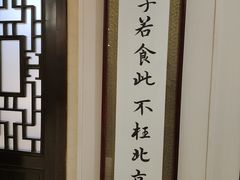 子若食此不枉北京